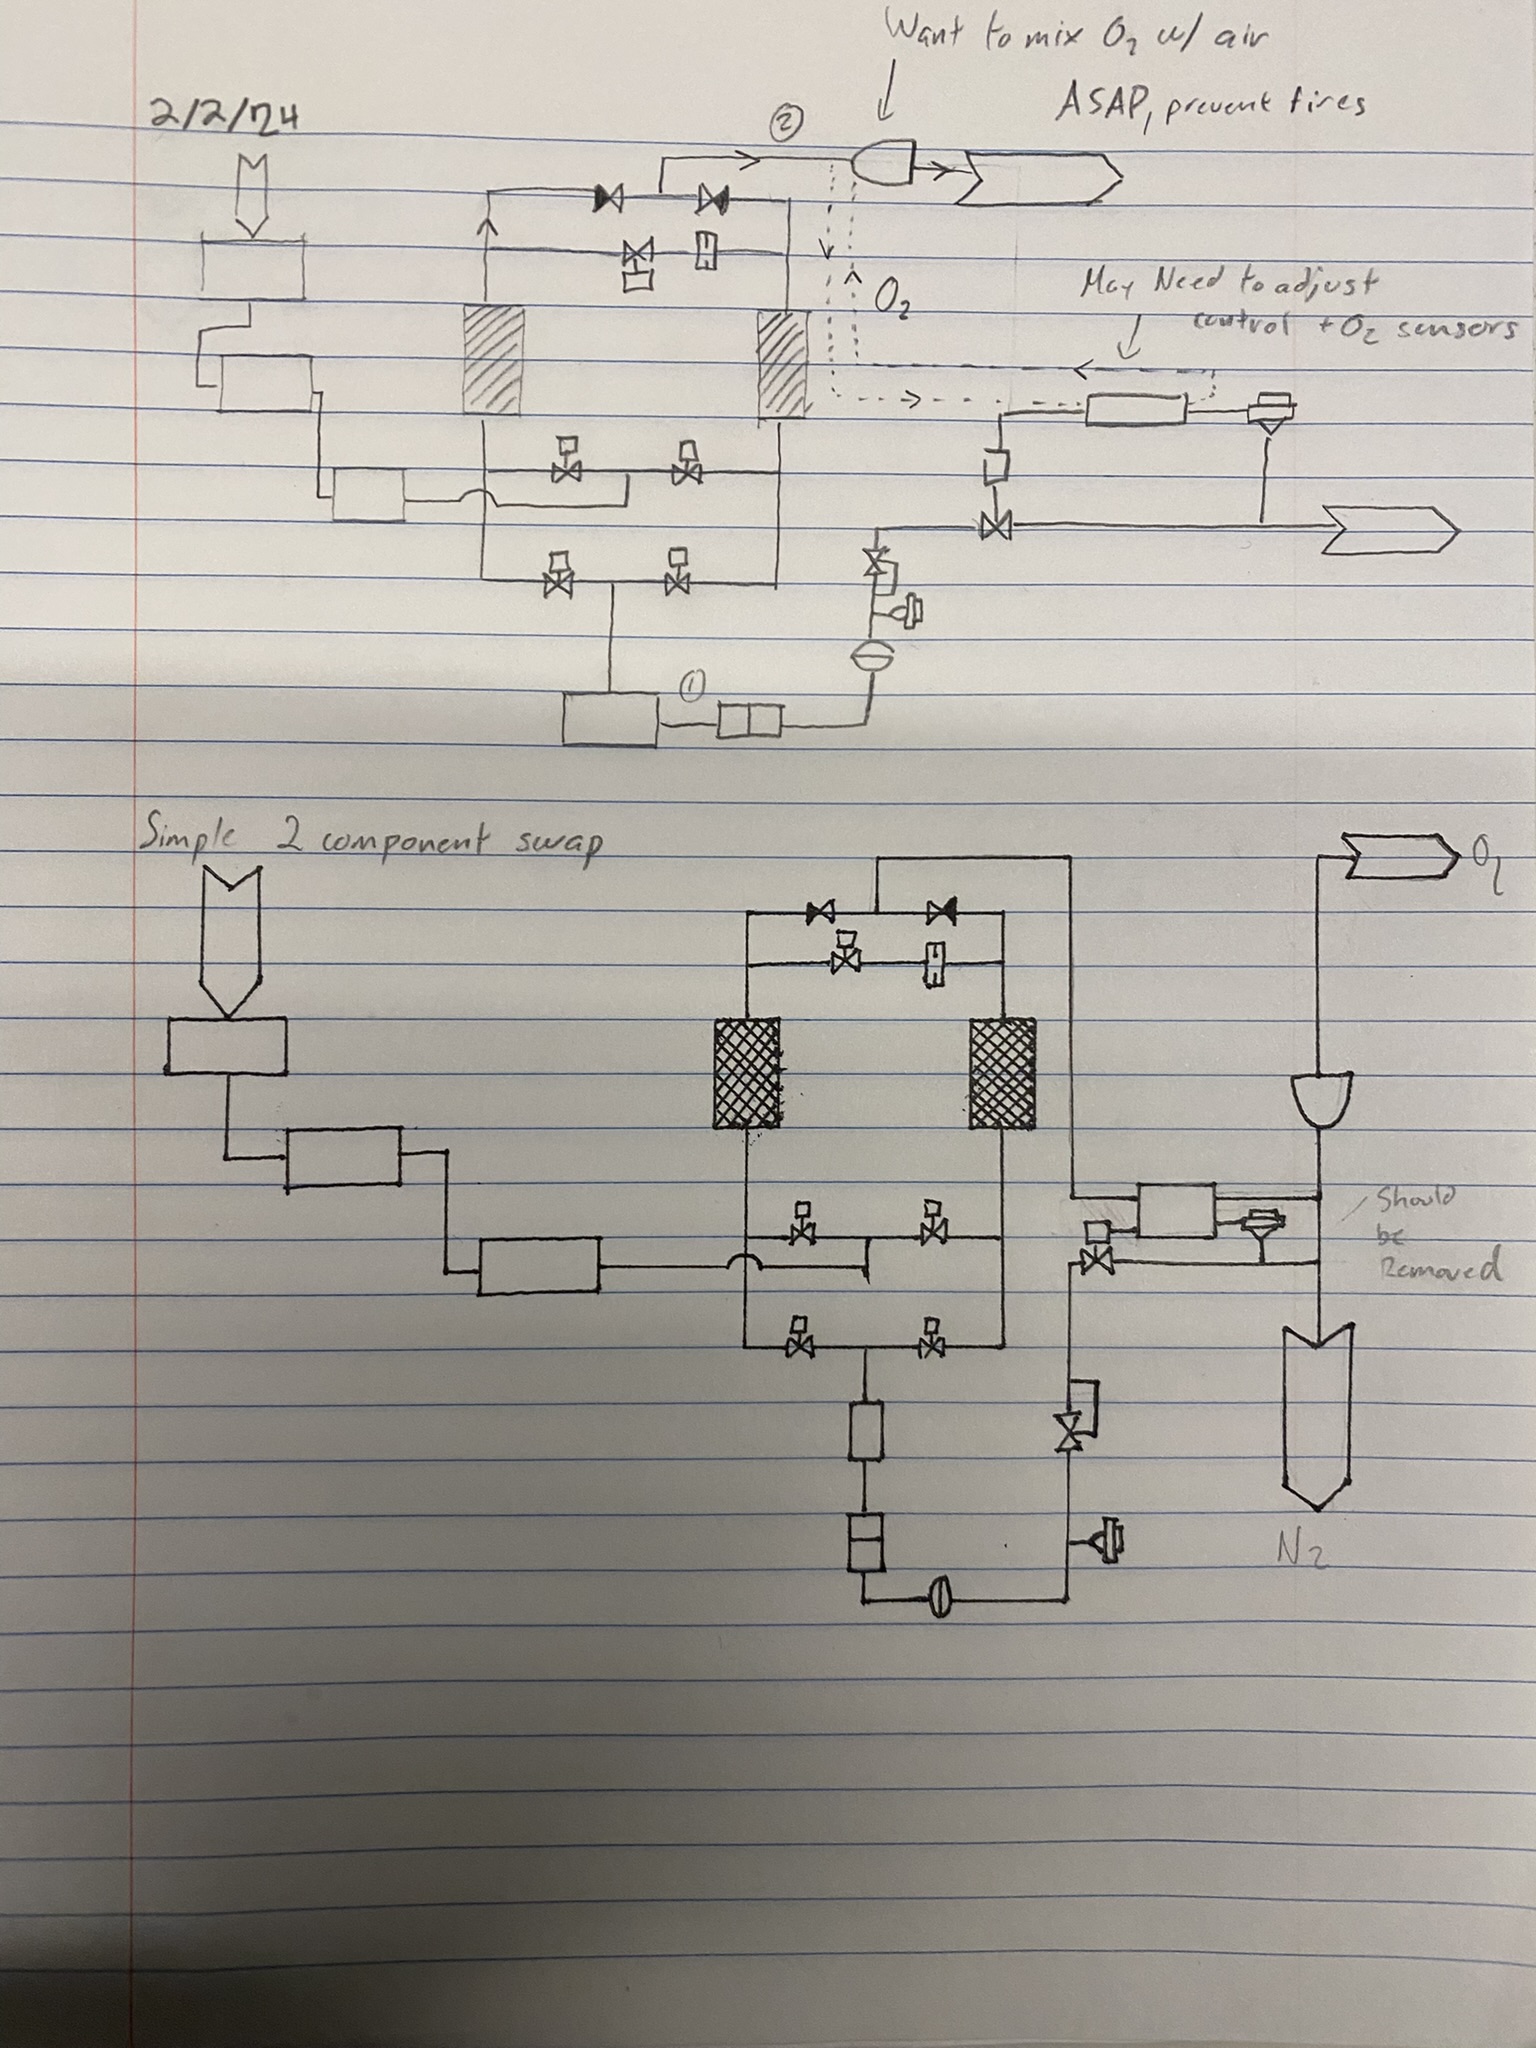 Want to mix O₂ w/ air
ASAP, prevent fires
2/2/24
②
O₂
May Need to adjust
control + O₂ sensors
①
Simple 2 component swap
O₂
Should
be
Removed
N₂